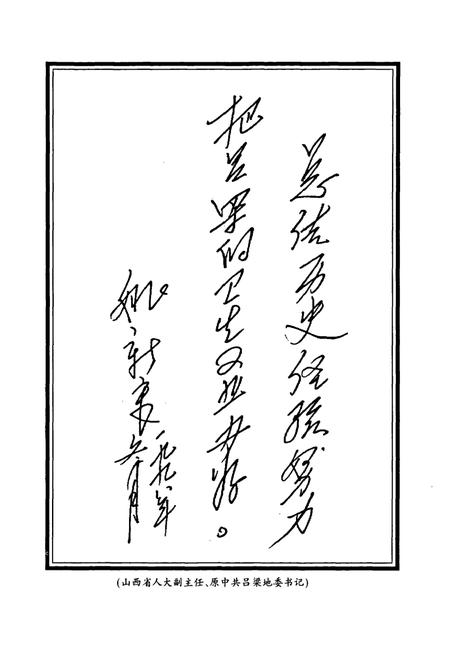 总结历史经验努力
把吕梁的卫生事业办好。
姚新章
一九九年
六月
(山西省人大副主任、原中共吕梁地委书记)